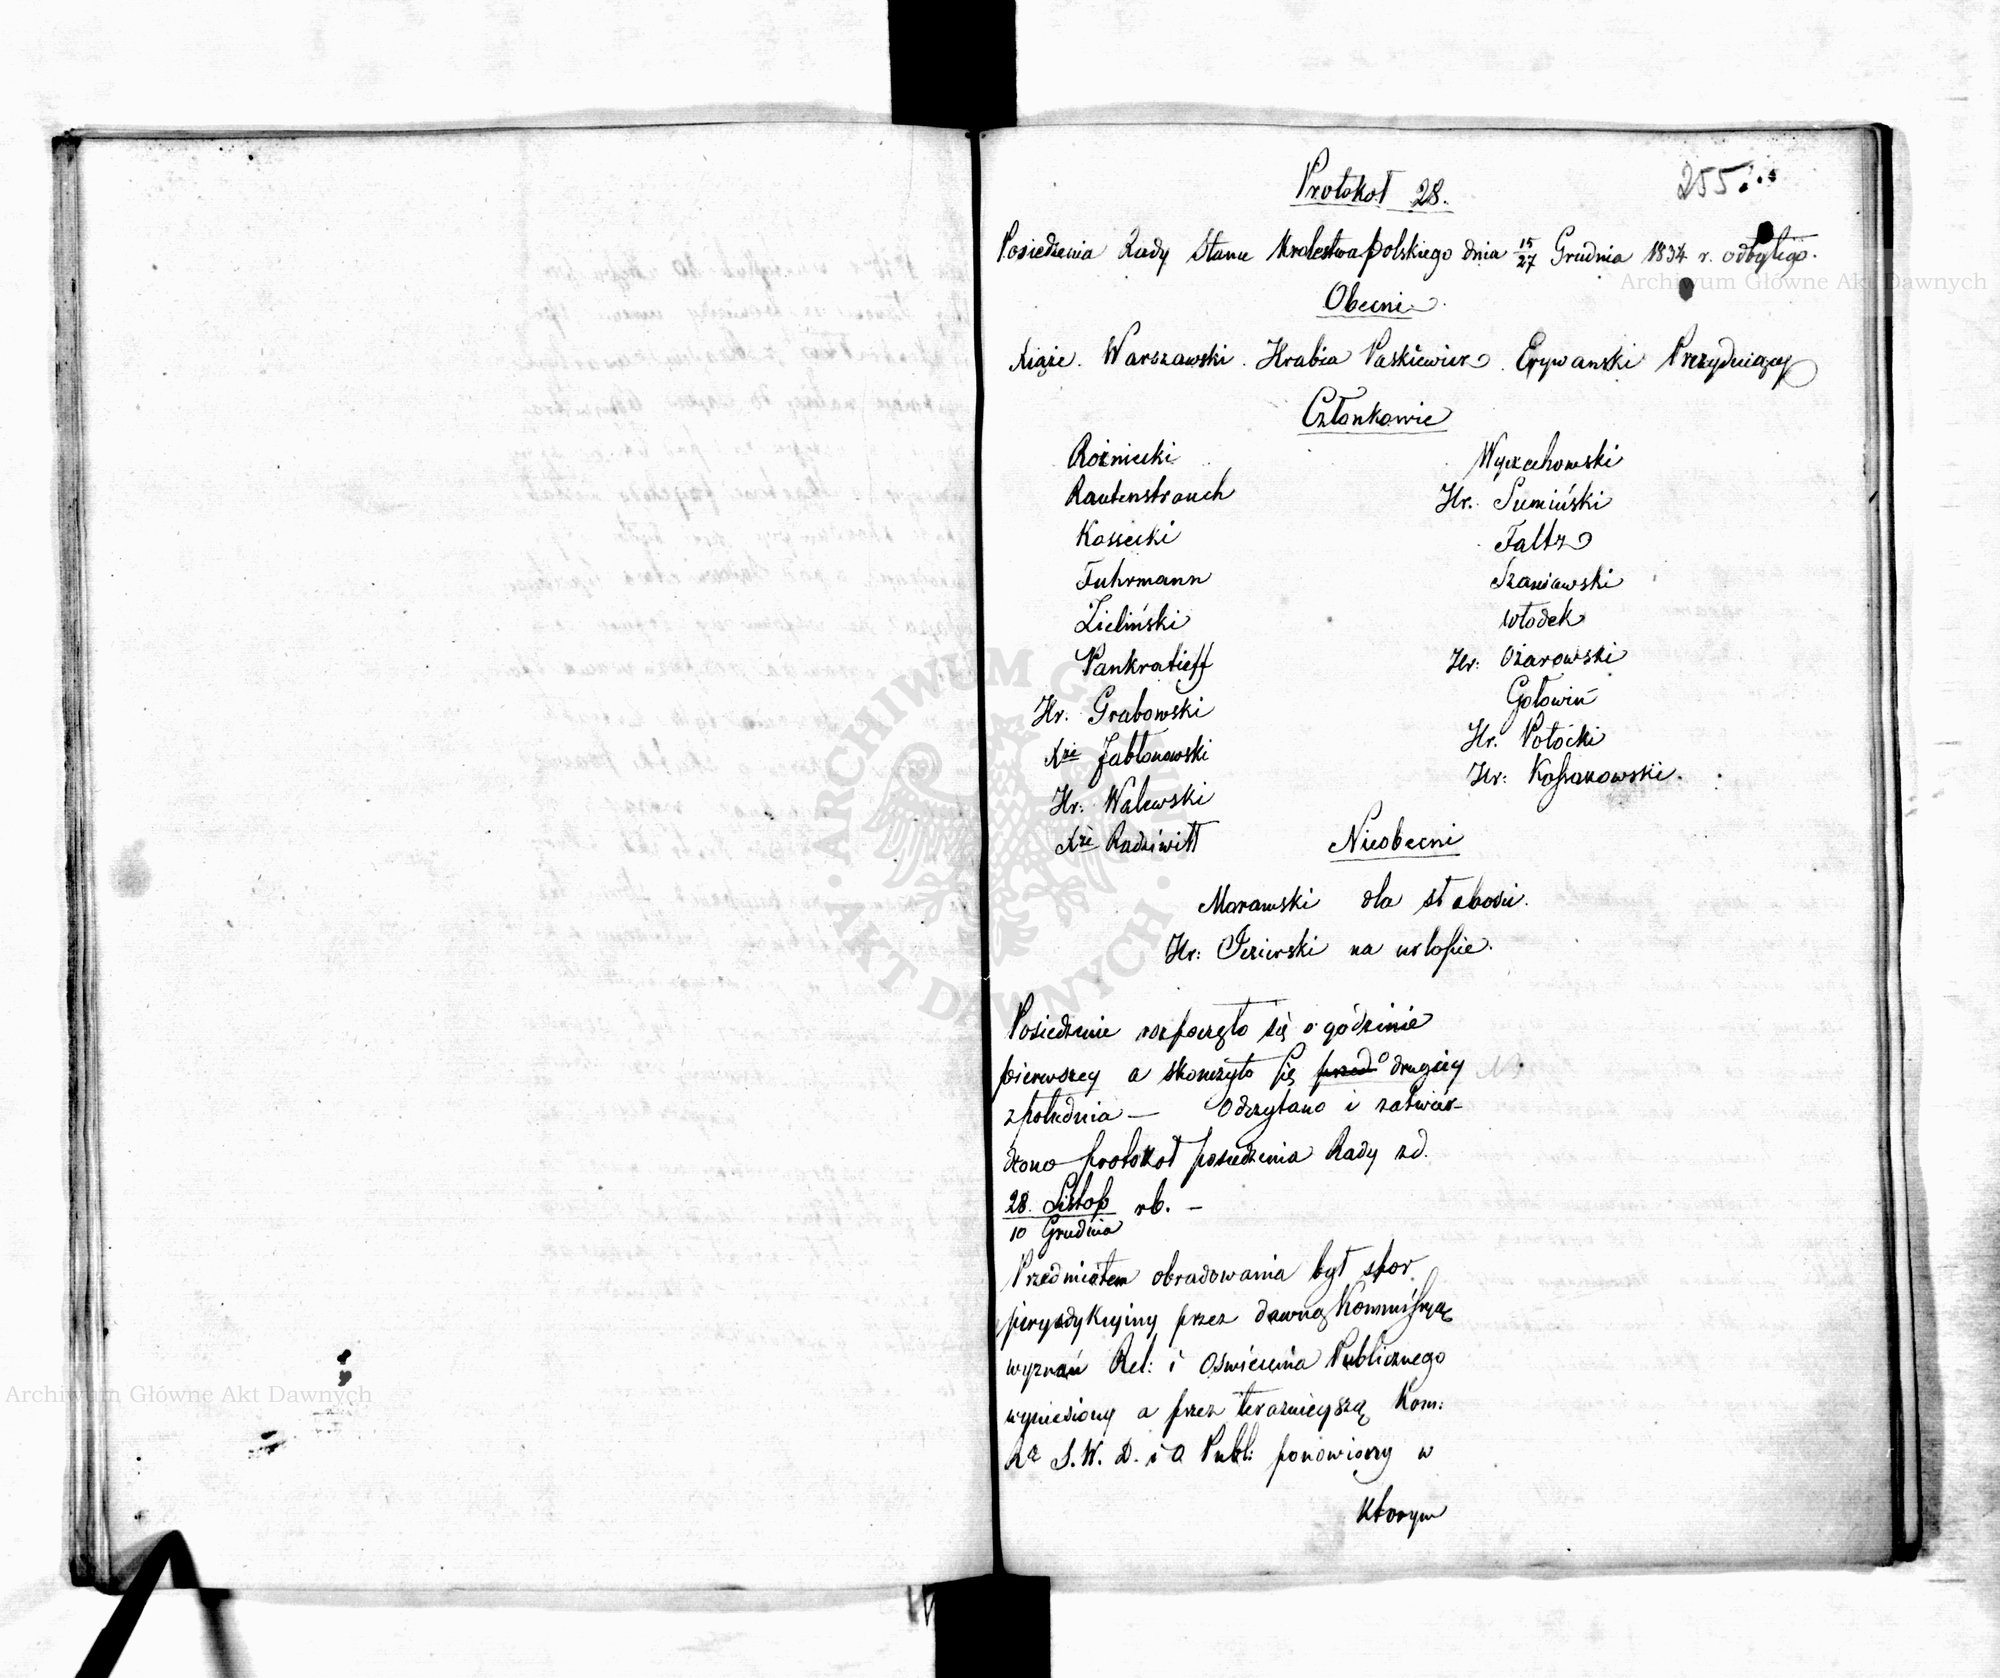 255.
Protokoł 28.
Posiedzenia Rady Stanu Krolestwa Polskiego dnia 15/27 Grudnia 1834 r. odbytego.
Obecni
Xiąże Warszawski Hrabia Paskiewicz Erywanski Prezydujący
Członkowie
Rożniecki
Rautenstrauch
Kossecki
Fuhrmann
Zieliński
Pankratieff
Hr. Grabowski
Xże Jabłonowski
Hr. Walewski
Xże Radziwiłł
Wyczechowski
Hr. Sumiński
Faltz
Szaniawski
Włodek
Hr: Ożarowski
Gołowin
Hr. Potocki
Hr: Kossakowski.
Nieobecni
Morawski dla słabości.
Hr: Jezierski na urlopie.
Posiedzenie rozpoczęło się o godzinie
pierwszey a skonczyło się przed o drugiey
z południa — Odczytano i zatwier-
dzono protokoł posiedzenia Rady z d.
28. Listop rb. –
10 Grudnia
Przedmiotem obradowania był spor
juryzdykcyiny przez dawną Kommissyą
wyznań Rel: i Oswiecenia Publicznego
wyniesiony a przez teraznieyszą Kom:
Rą S. W. D. i O Publ: ponowiony w
ktorym
Archiwum Główne Akt Dawnych
Archiwum Główne Akt Dawnych
ARCHIWUM GŁÓWNE AKT DAWNYCH